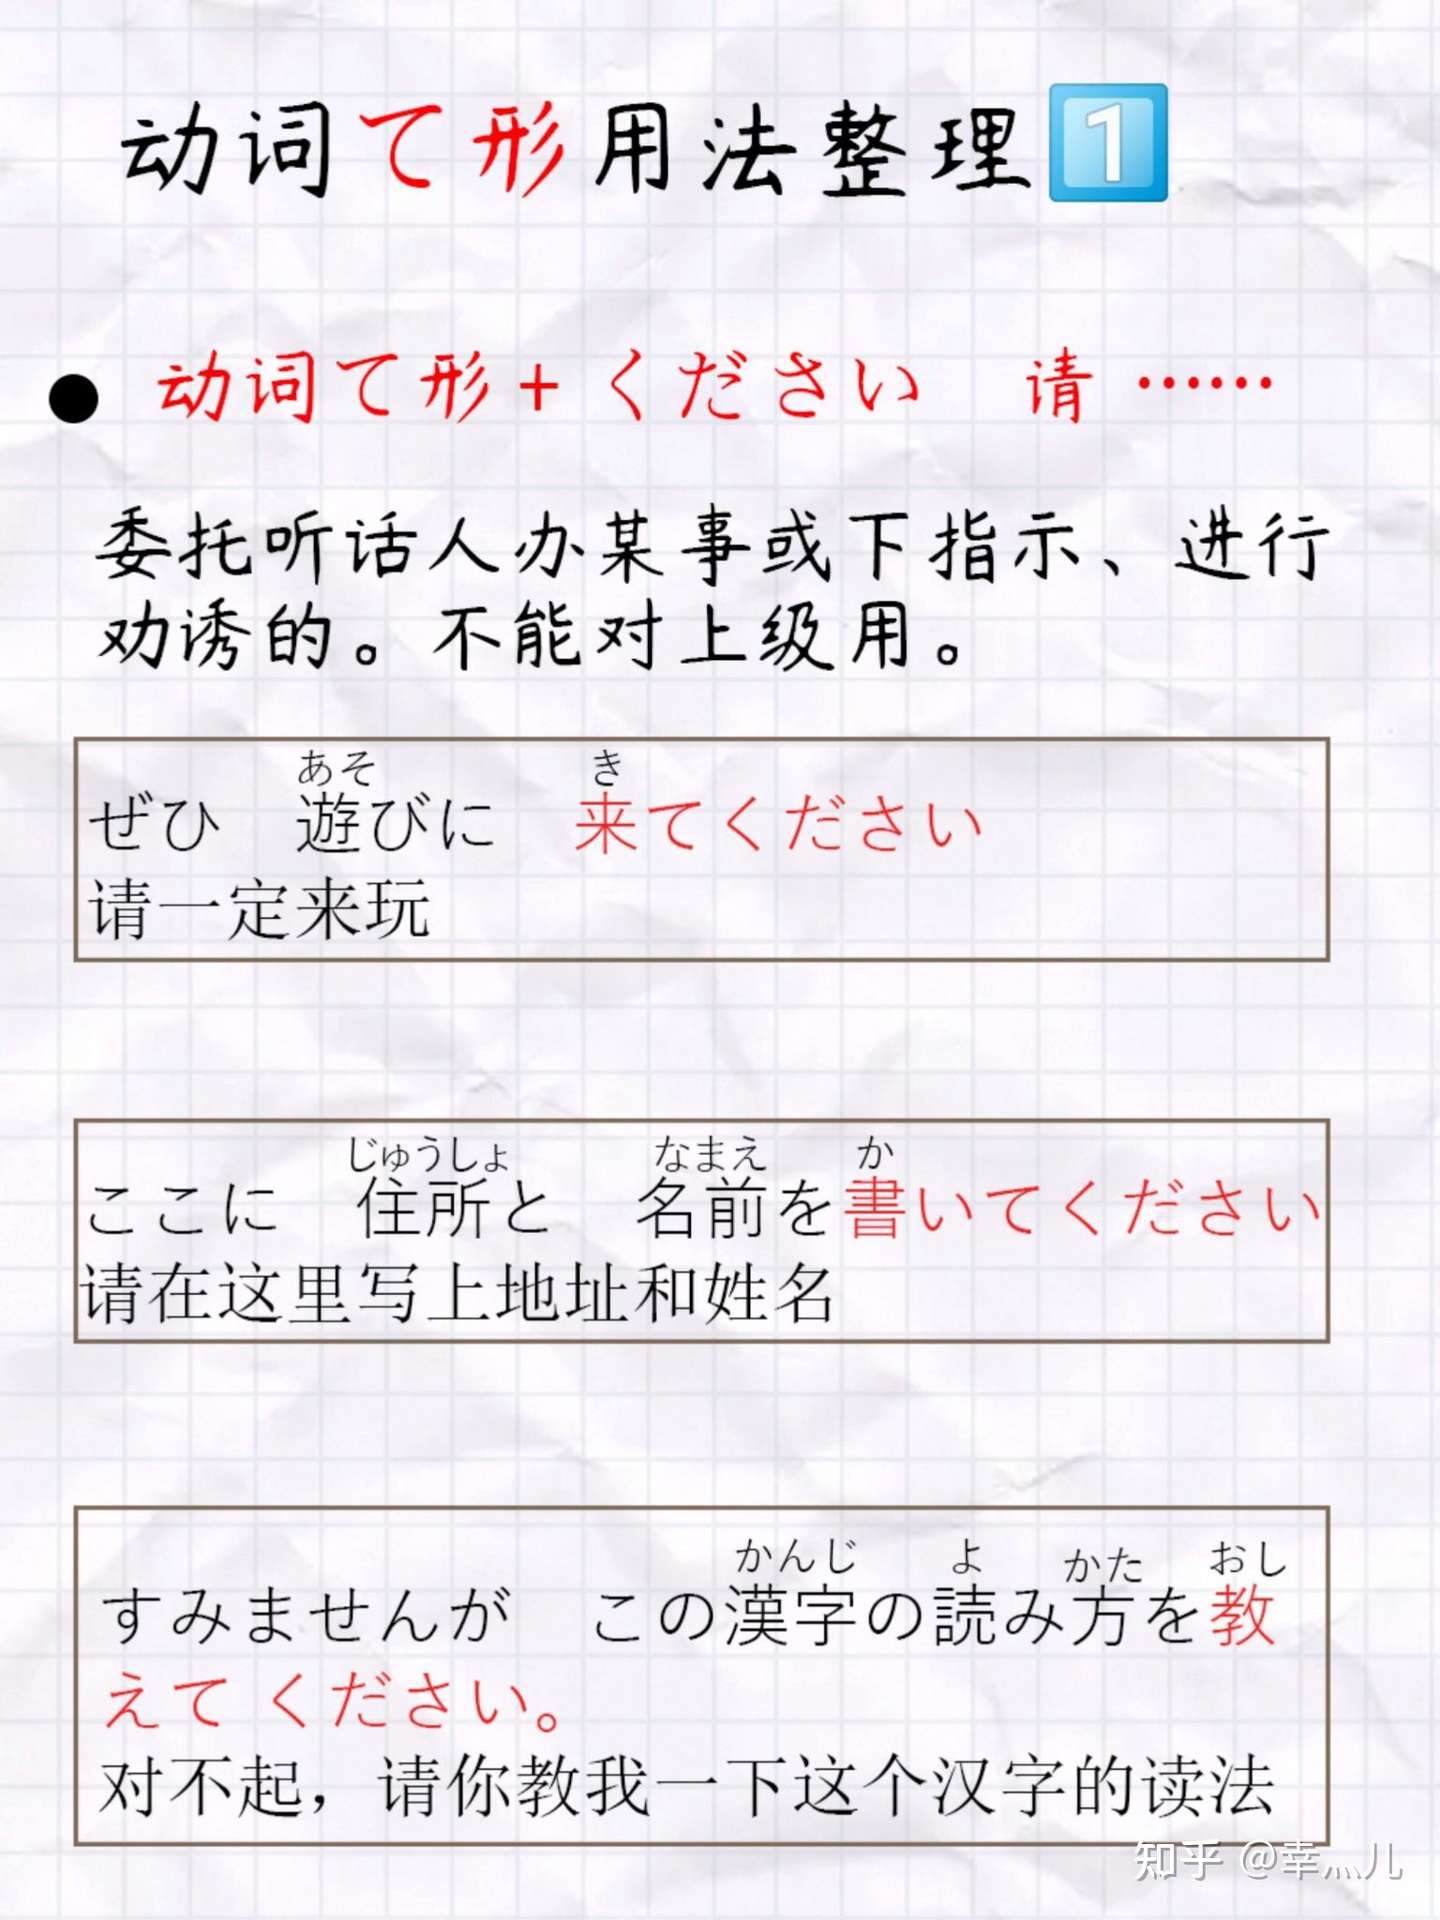 动词て形用法整理1️⃣
● 动词て形+ください 请 ……
委托听话人办某事或下指示、进行
劝诱的。不能对上级用。
あそ き
ぜひ 遊びに 来てください
请一定来玩
じゅうしょ なまえ か
ここに 住所と 名前を書いてください
请在这里写上地址和姓名
かんじ よ かた おし
すみませんが この漢字の読み方を教
えて ください。
对不起，请你教我一下这个汉字的读法
知乎 @幸灬儿